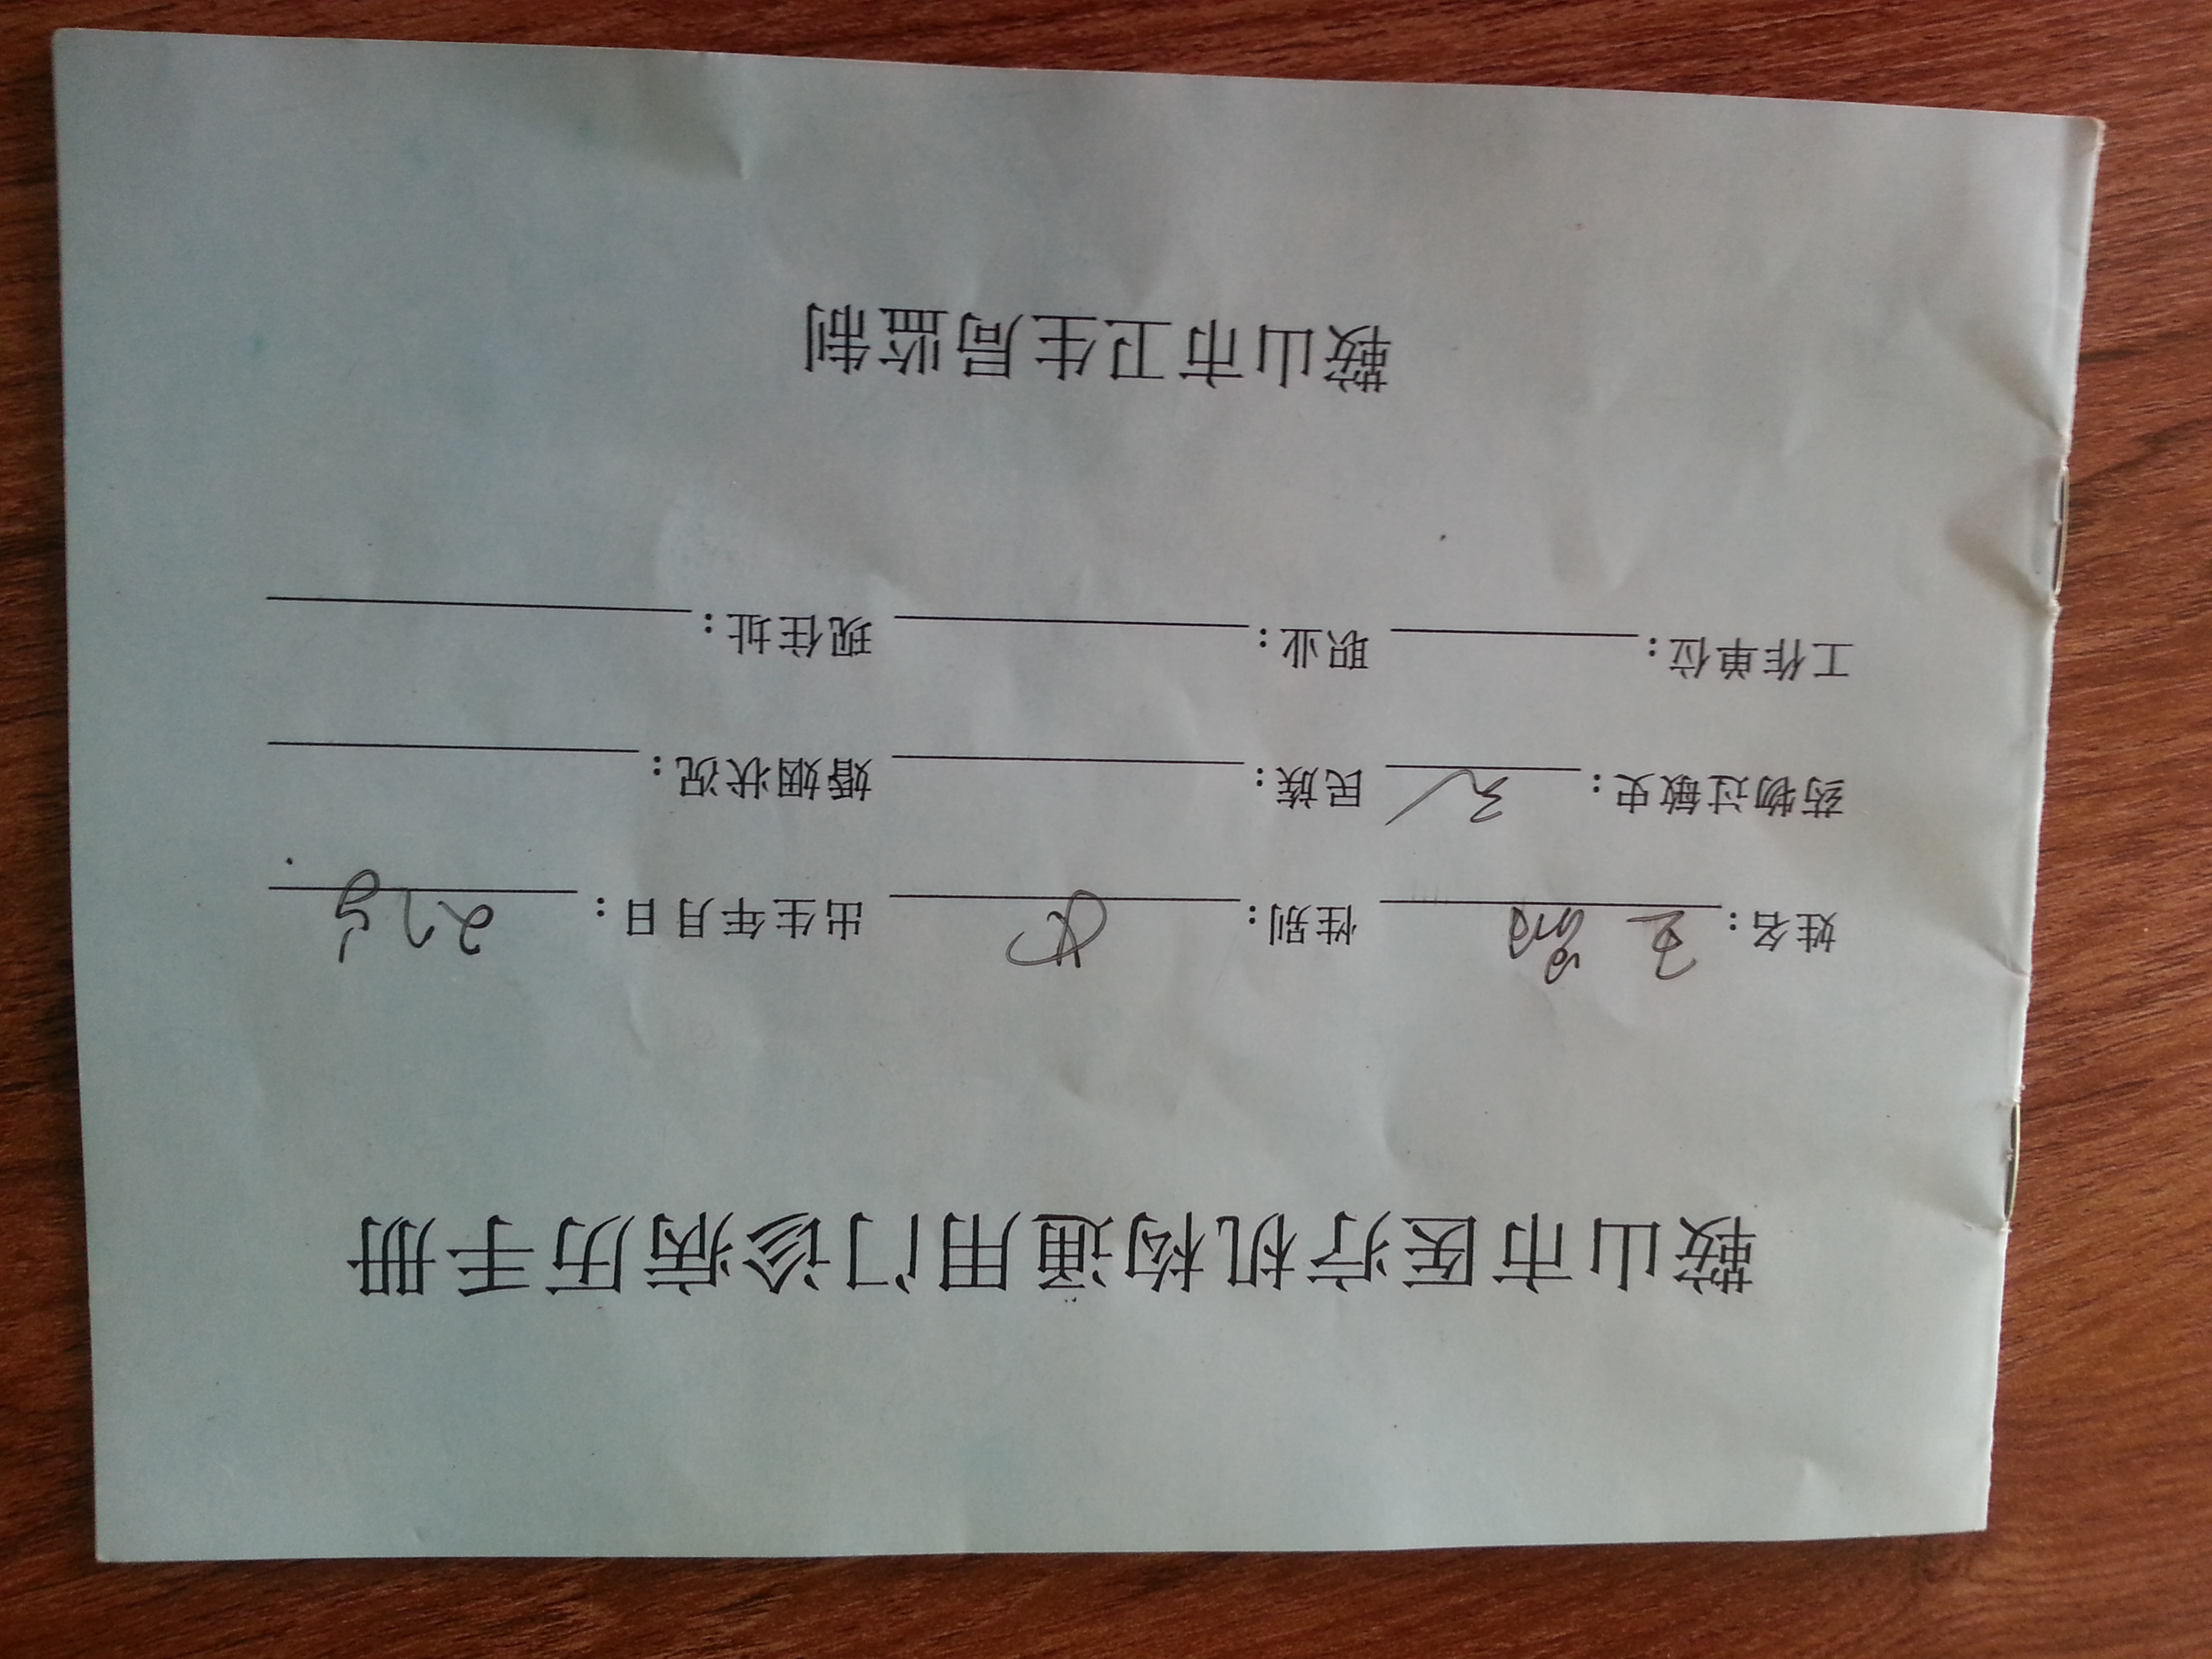 鞍山市医疗机构通用门诊病历手册
姓名：王 性别：女 出生年月日：27岁
药物过敏史：无 民族： 婚姻状况：
工作单位： 职业： 现住址：
鞍山市卫生局监制